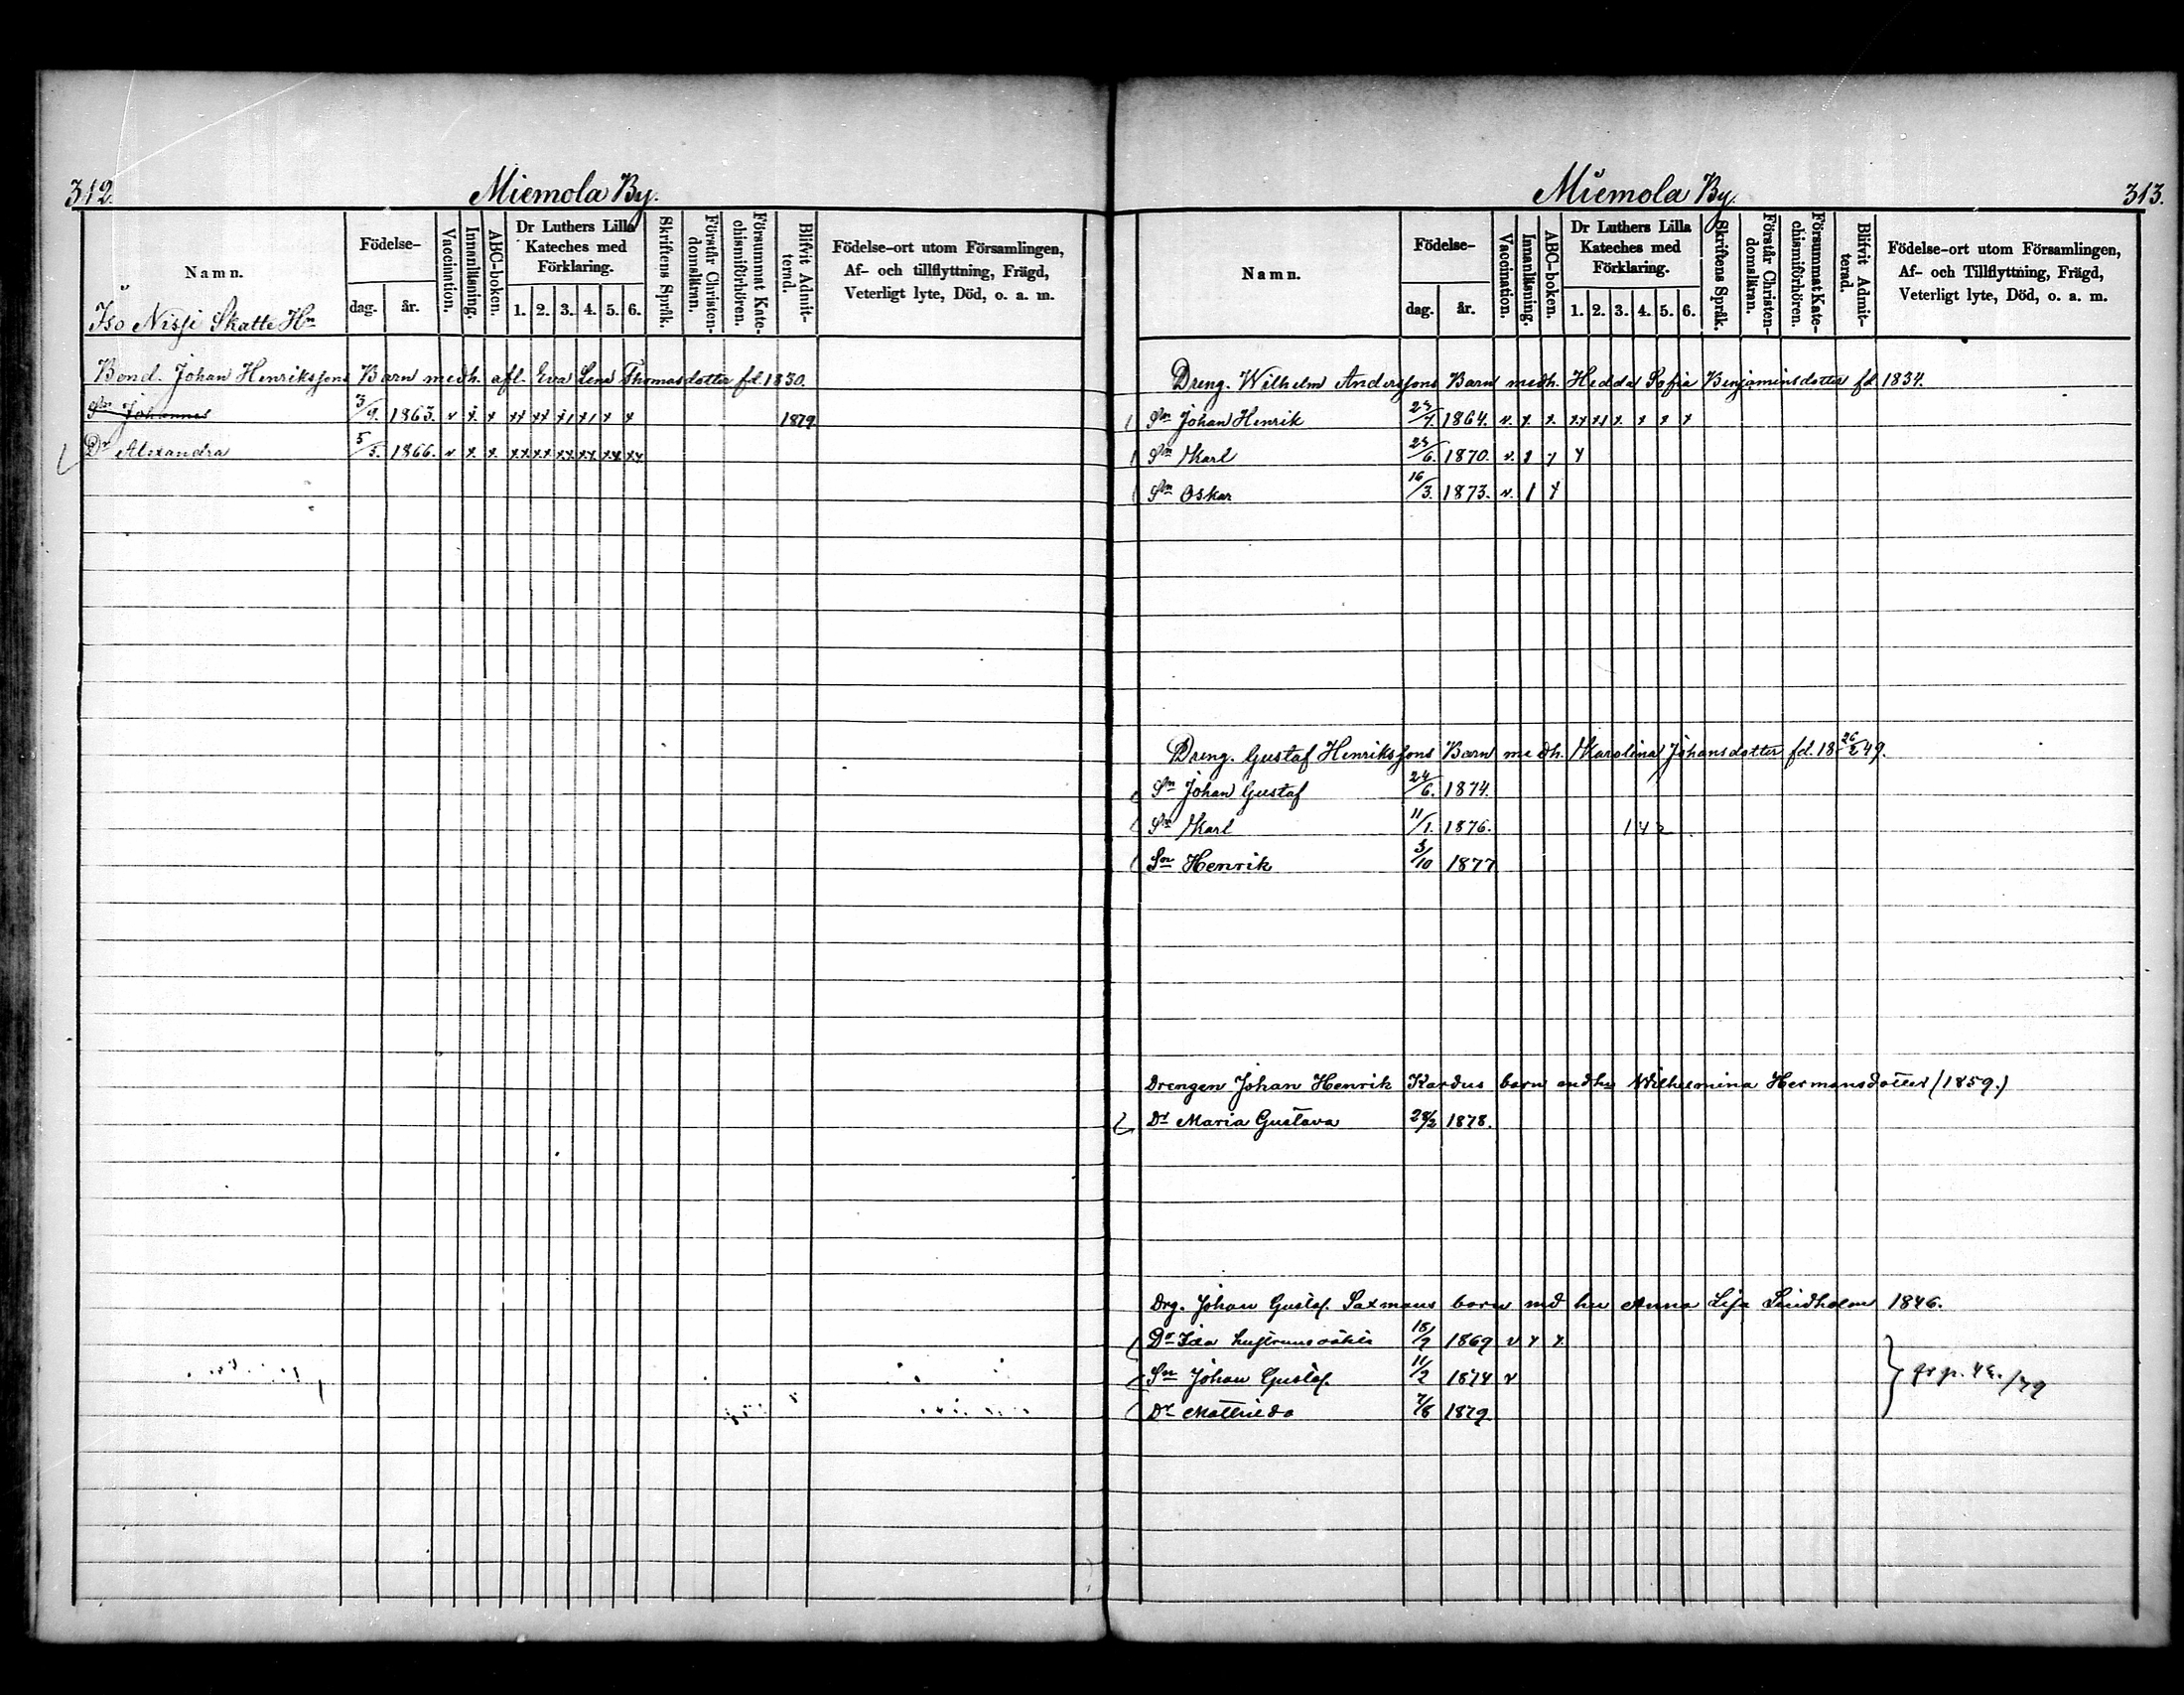 312.
Miemola By.
Namn.
Iso Nissi Skatte Hn
Födelse-
dag.
år.
Vaccination.
Innanläsning.
ABC-boken.
Dr Luthers Lilla
Kateches med
Förklaring.
1. 2. 3. 4. 5. 6.
Skriftens Språk.
Förstår Christen-
domsläran.
Försummat Kate-
chismiförhören.
Blifvit Admit-
terad.
Födelse-ort utom Församlingen,
Af- och tillflyttning, Frägd,
Veterligt lyte, Död, o. a. m.
Bond. Johan Henrikssons Barn medh. afl. Eva Lena Thomasdotter fd. 1830.
Sn Johannes 3/9. 1863. v x x xx xx x1 x1 x x 1879
Dr Alexandra 5/5. 1866. v x x xx xx xx xx xx xx
Miemola By.
313.
Namn.
Födelse-
dag.
år.
Vaccination.
Innanläsning.
ABC-boken.
Dr Luthers Lilla
Kateches med
Förklaring.
1. 2. 3. 4. 5. 6.
Skriftens Språk.
Förstår Christen-
domsläran.
Försummat Kate-
chismiförhören.
Blifvit Admit-
terad.
Födelse-ort utom Församlingen,
Af- och Tillflyttning, Frägd,
Veterligt lyte, Död, o. a. m.
Dreng. Wilhelm Anderssons Barn medh. Hedda Sofia Benjaminsdotter fd 1834.
Sn Johan Henrik 1864. v. x x. xx x1 x x x x
Sn Karl 1870. v.
Sn Oskar 16/3. 1873. v.
Dreng. Gustaf Henrikssons Barn medh. Karolina Johansdotter fd. 18 26/2 49.
Sn Johan Gustaf 24/6. 1874.
Sn Karl 11/1. 1876.
Sn Henrik 3/10 1877
Drengen Johan Henrik Kardus barn Wilhelmina Hermansdotter (1859.)
Dr Maria Gustava 28/2 1878.
Drg. Johan Gustaf Saxmans barn md hu Anna Lisa Lindholm 1846.
Dr Ida 1869 v x x
Sn Johan Gustaf 11/2 1874 v
Dr 7/8 1879